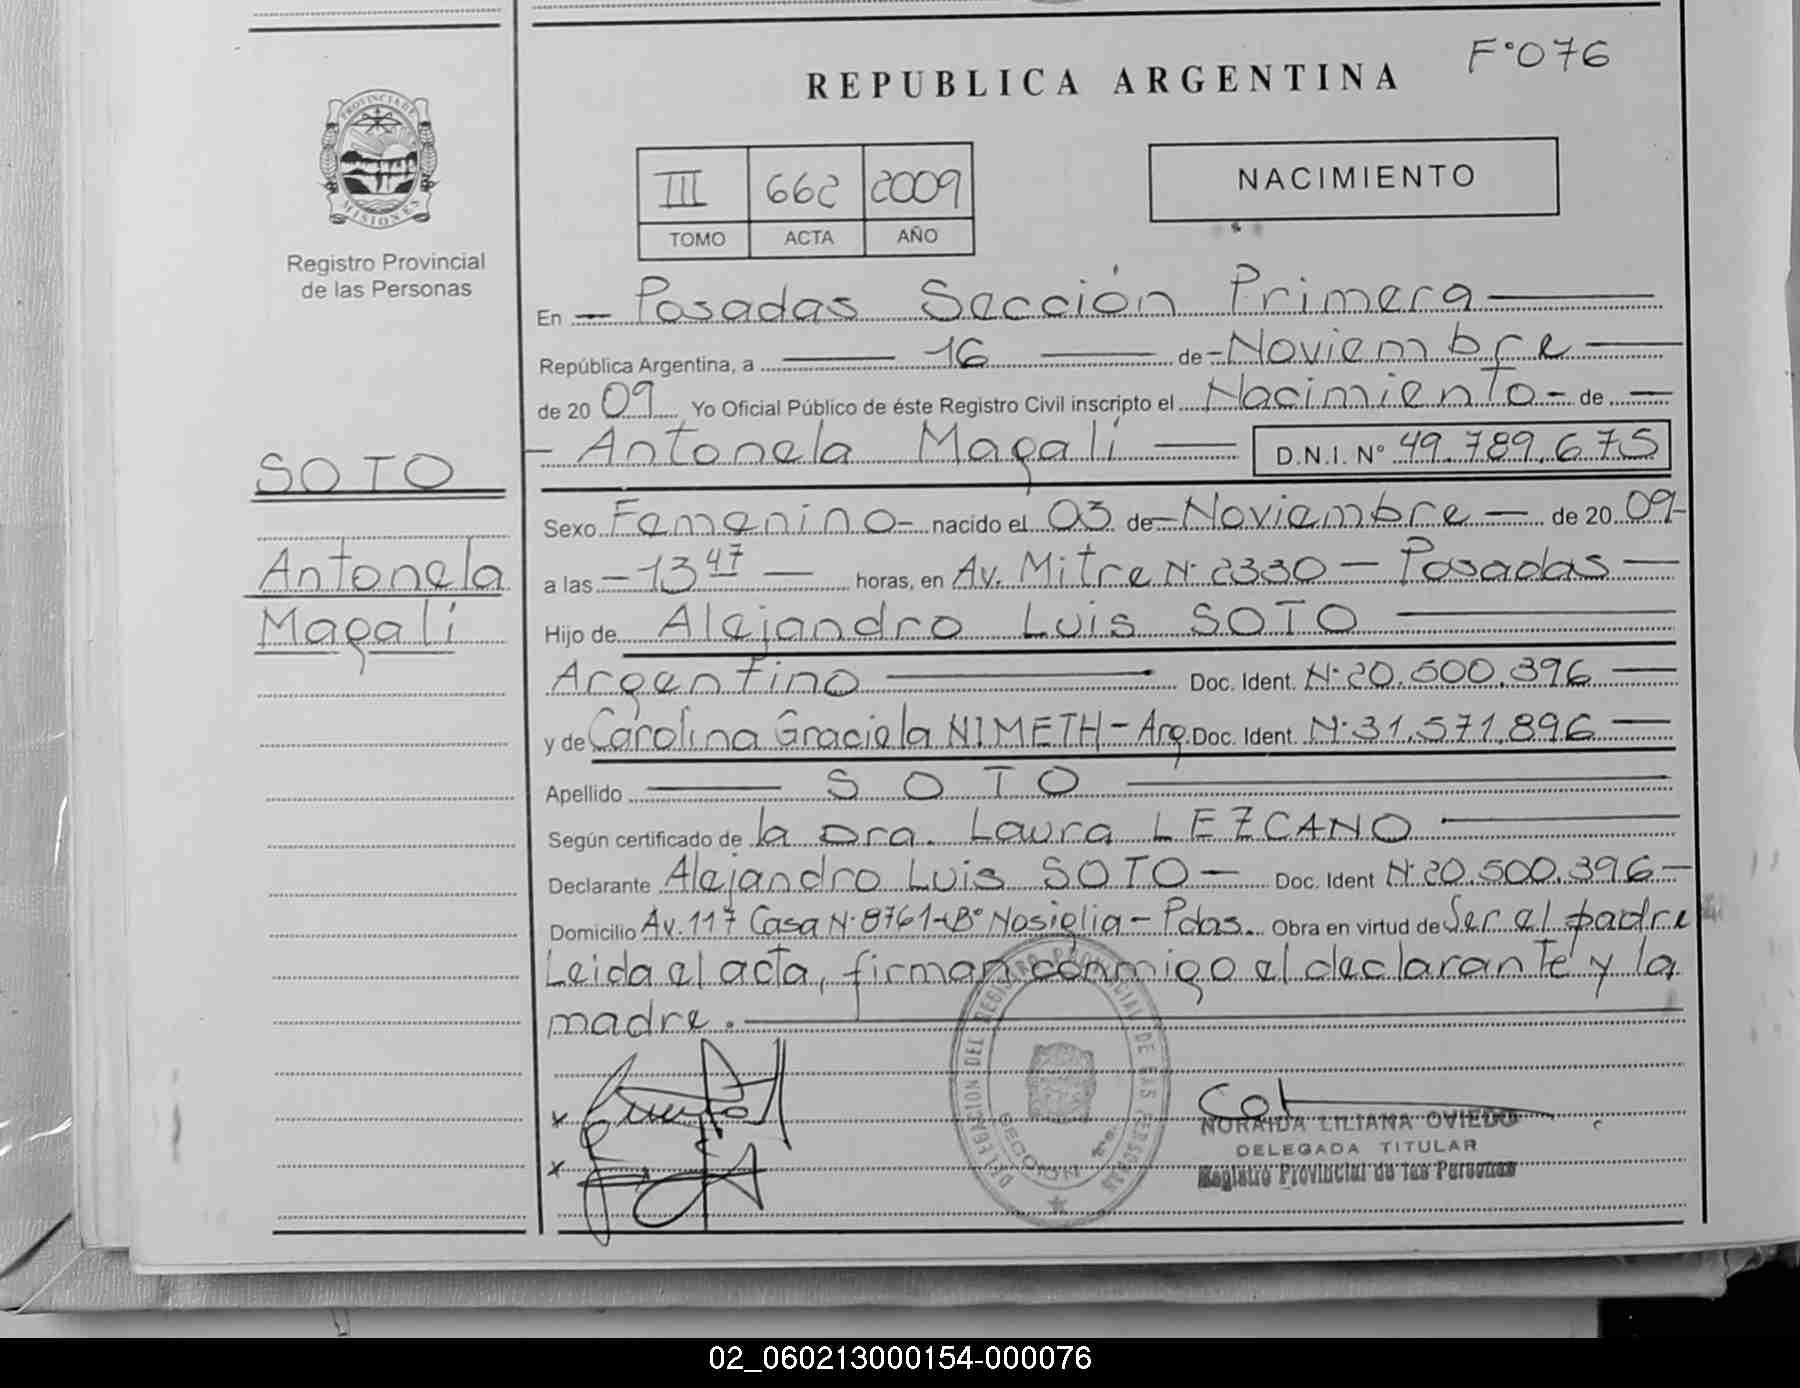 F°076
REPUBLICA ARGENTINA
PROVINCIA DE MISIONES
Registro Provincial
de las Personas
III 662 2009
TOMO ACTA AÑO
NACIMIENTO
En — Posadas Sección Primera —
República Argentina, a — 16 — de - Noviembre —
de 20 09 Yo Oficial Público de éste Registro Civil inscripto el Nacimiento - de —
- Antonela Magalí — D.N.I. N° 49.789.675
SOTO
Antonela
Magalí
Sexo Femenino - nacido el 03 de - Noviembre — de 20 09 -
a las - 13 47 — horas, en Av. Mitre N° 2330 — Posadas —
Hijo de Alejandro Luis SOTO —
Argentino — Doc. Ident. N° 20.500.396 —
y de Carolina Graciela NIMETH - Arg. Doc. Ident. N° 31.571.896 —
Apellido — SOTO —
Según certificado de la Dra. Laura LEZCANO —
Declarante Alejandro Luis SOTO — Doc. Ident N° 20.500.396 —
Domicilio Av. 117 Casa N° 8761 - B° Nosiglia - Pdas. Obra en virtud de Ser el padre
Leida el acta, firman conmigo el declarante y la
madre. —
DELEGACION DEL REGISTRO PROVINCIAL DE LAS PERSONAS
SECCION 1ra.
NORAIDA LILIANA OVIEDO
DELEGADA TITULAR
Registro Provincial de las Personas
02_060213000154-000076